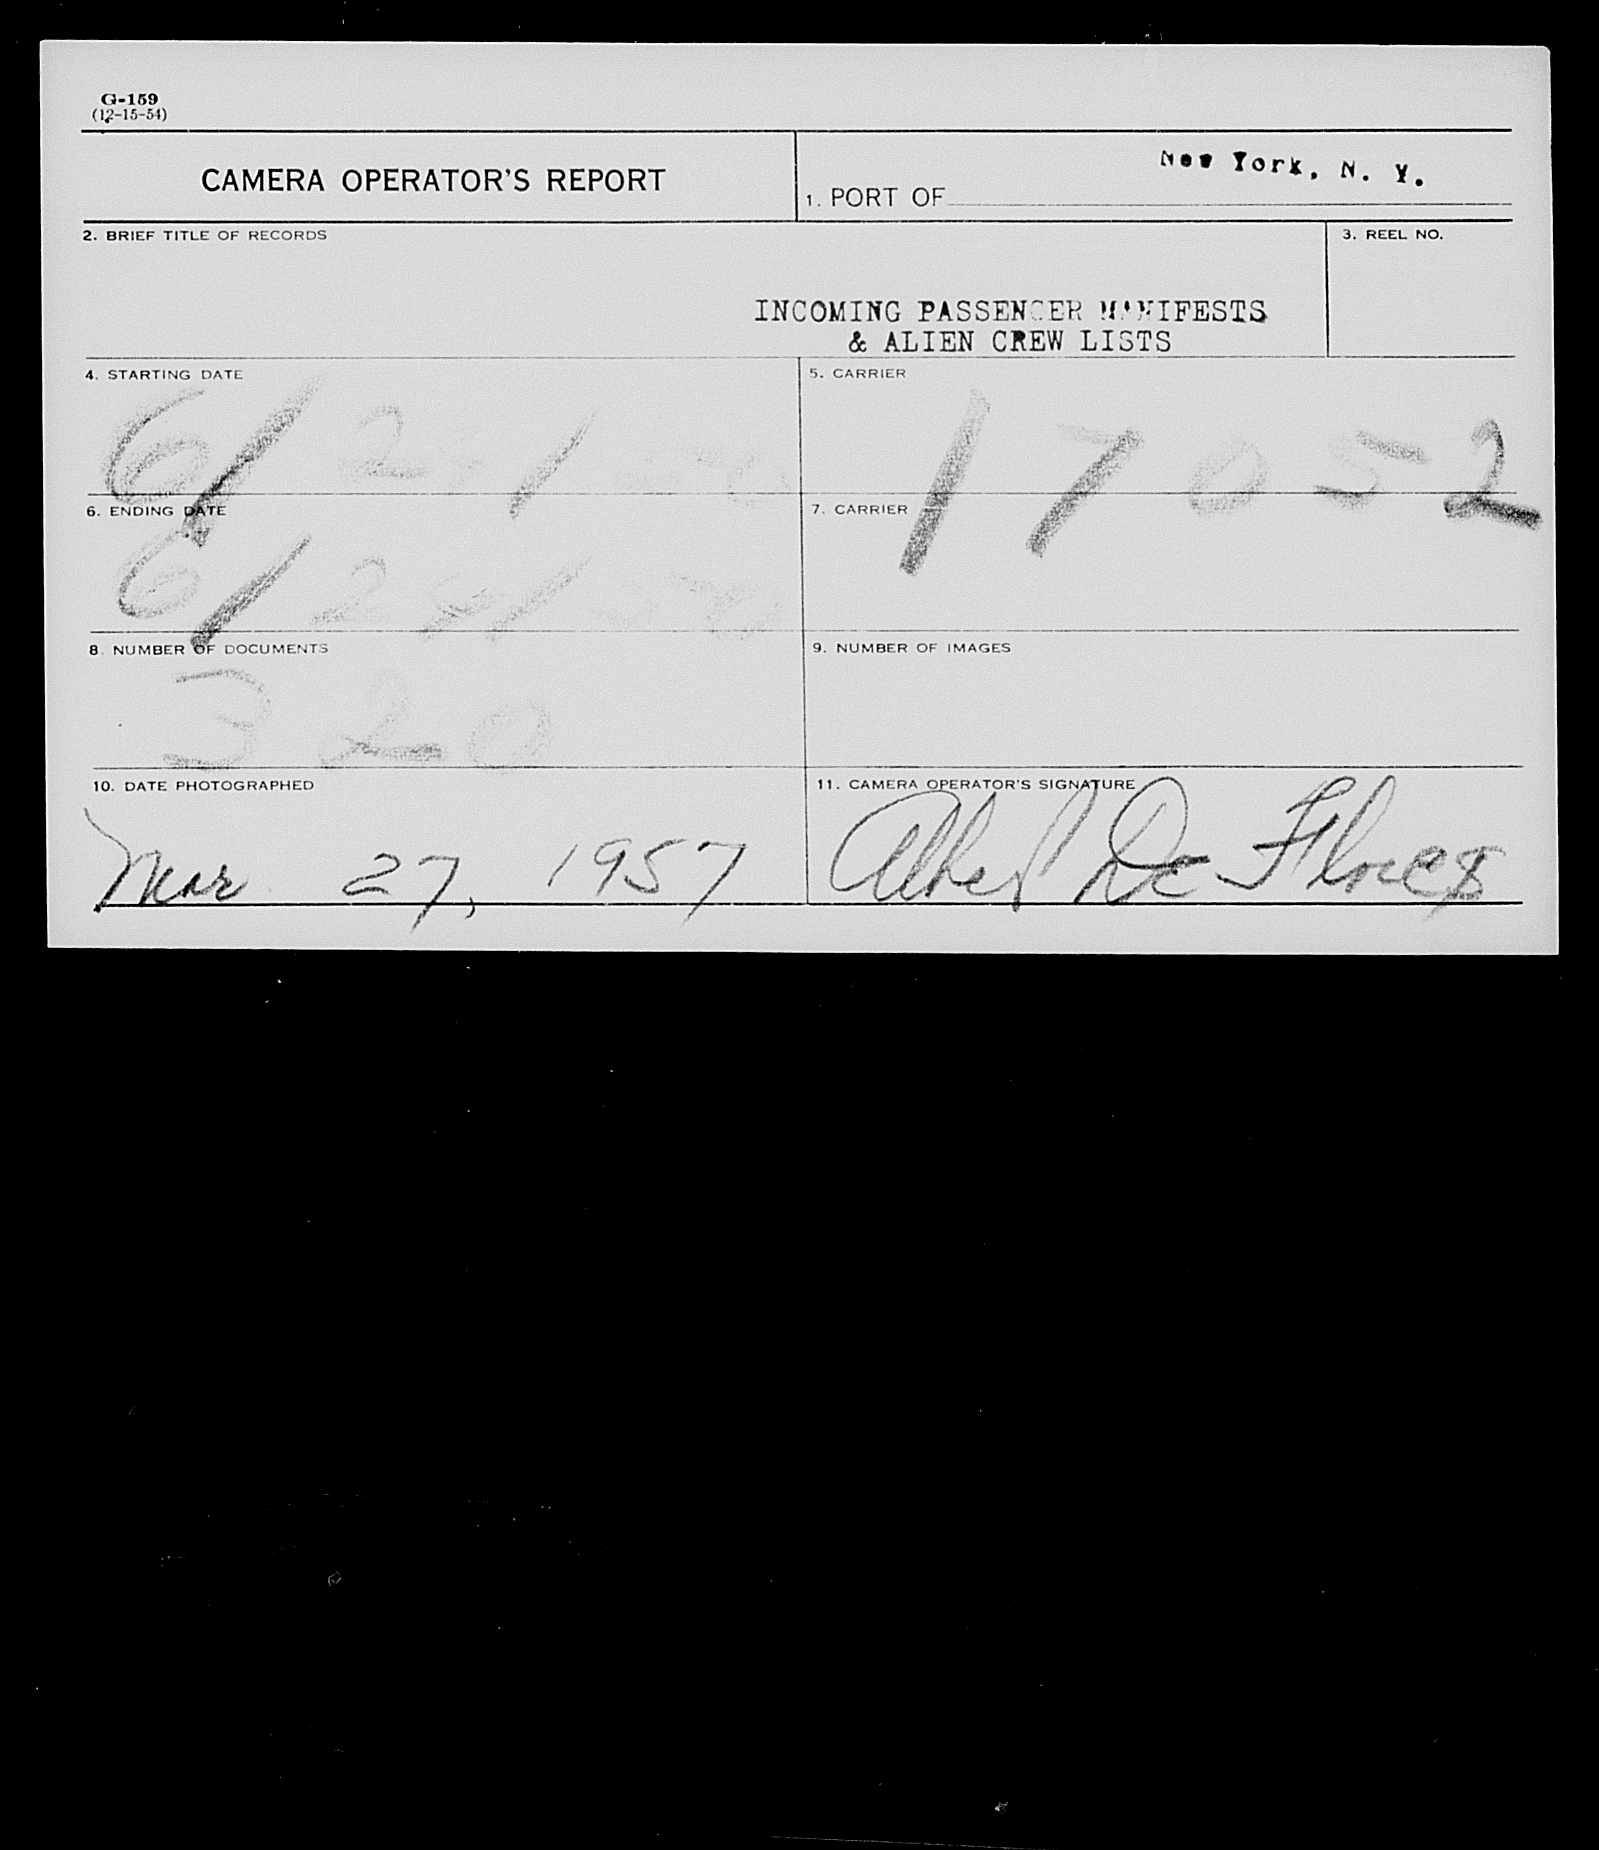 G-159
(12-15-54)
CAMERA OPERATOR'S REPORT
1. PORT OF New York, N. Y.
2. BRIEF TITLE OF RECORDS
3. REEL NO.
INCOMING PASSENGER MANIFESTS
& ALIEN CREW LISTS
4. STARTING DATE
5. CARRIER
6/2
17052
6. ENDING DATE
7. CARRIER
6/2
8. NUMBER OF DOCUMENTS
9. NUMBER OF IMAGES
320
10. DATE PHOTOGRAPHED
11. CAMERA OPERATOR'S SIGNATURE
Mar 27, 1957
De